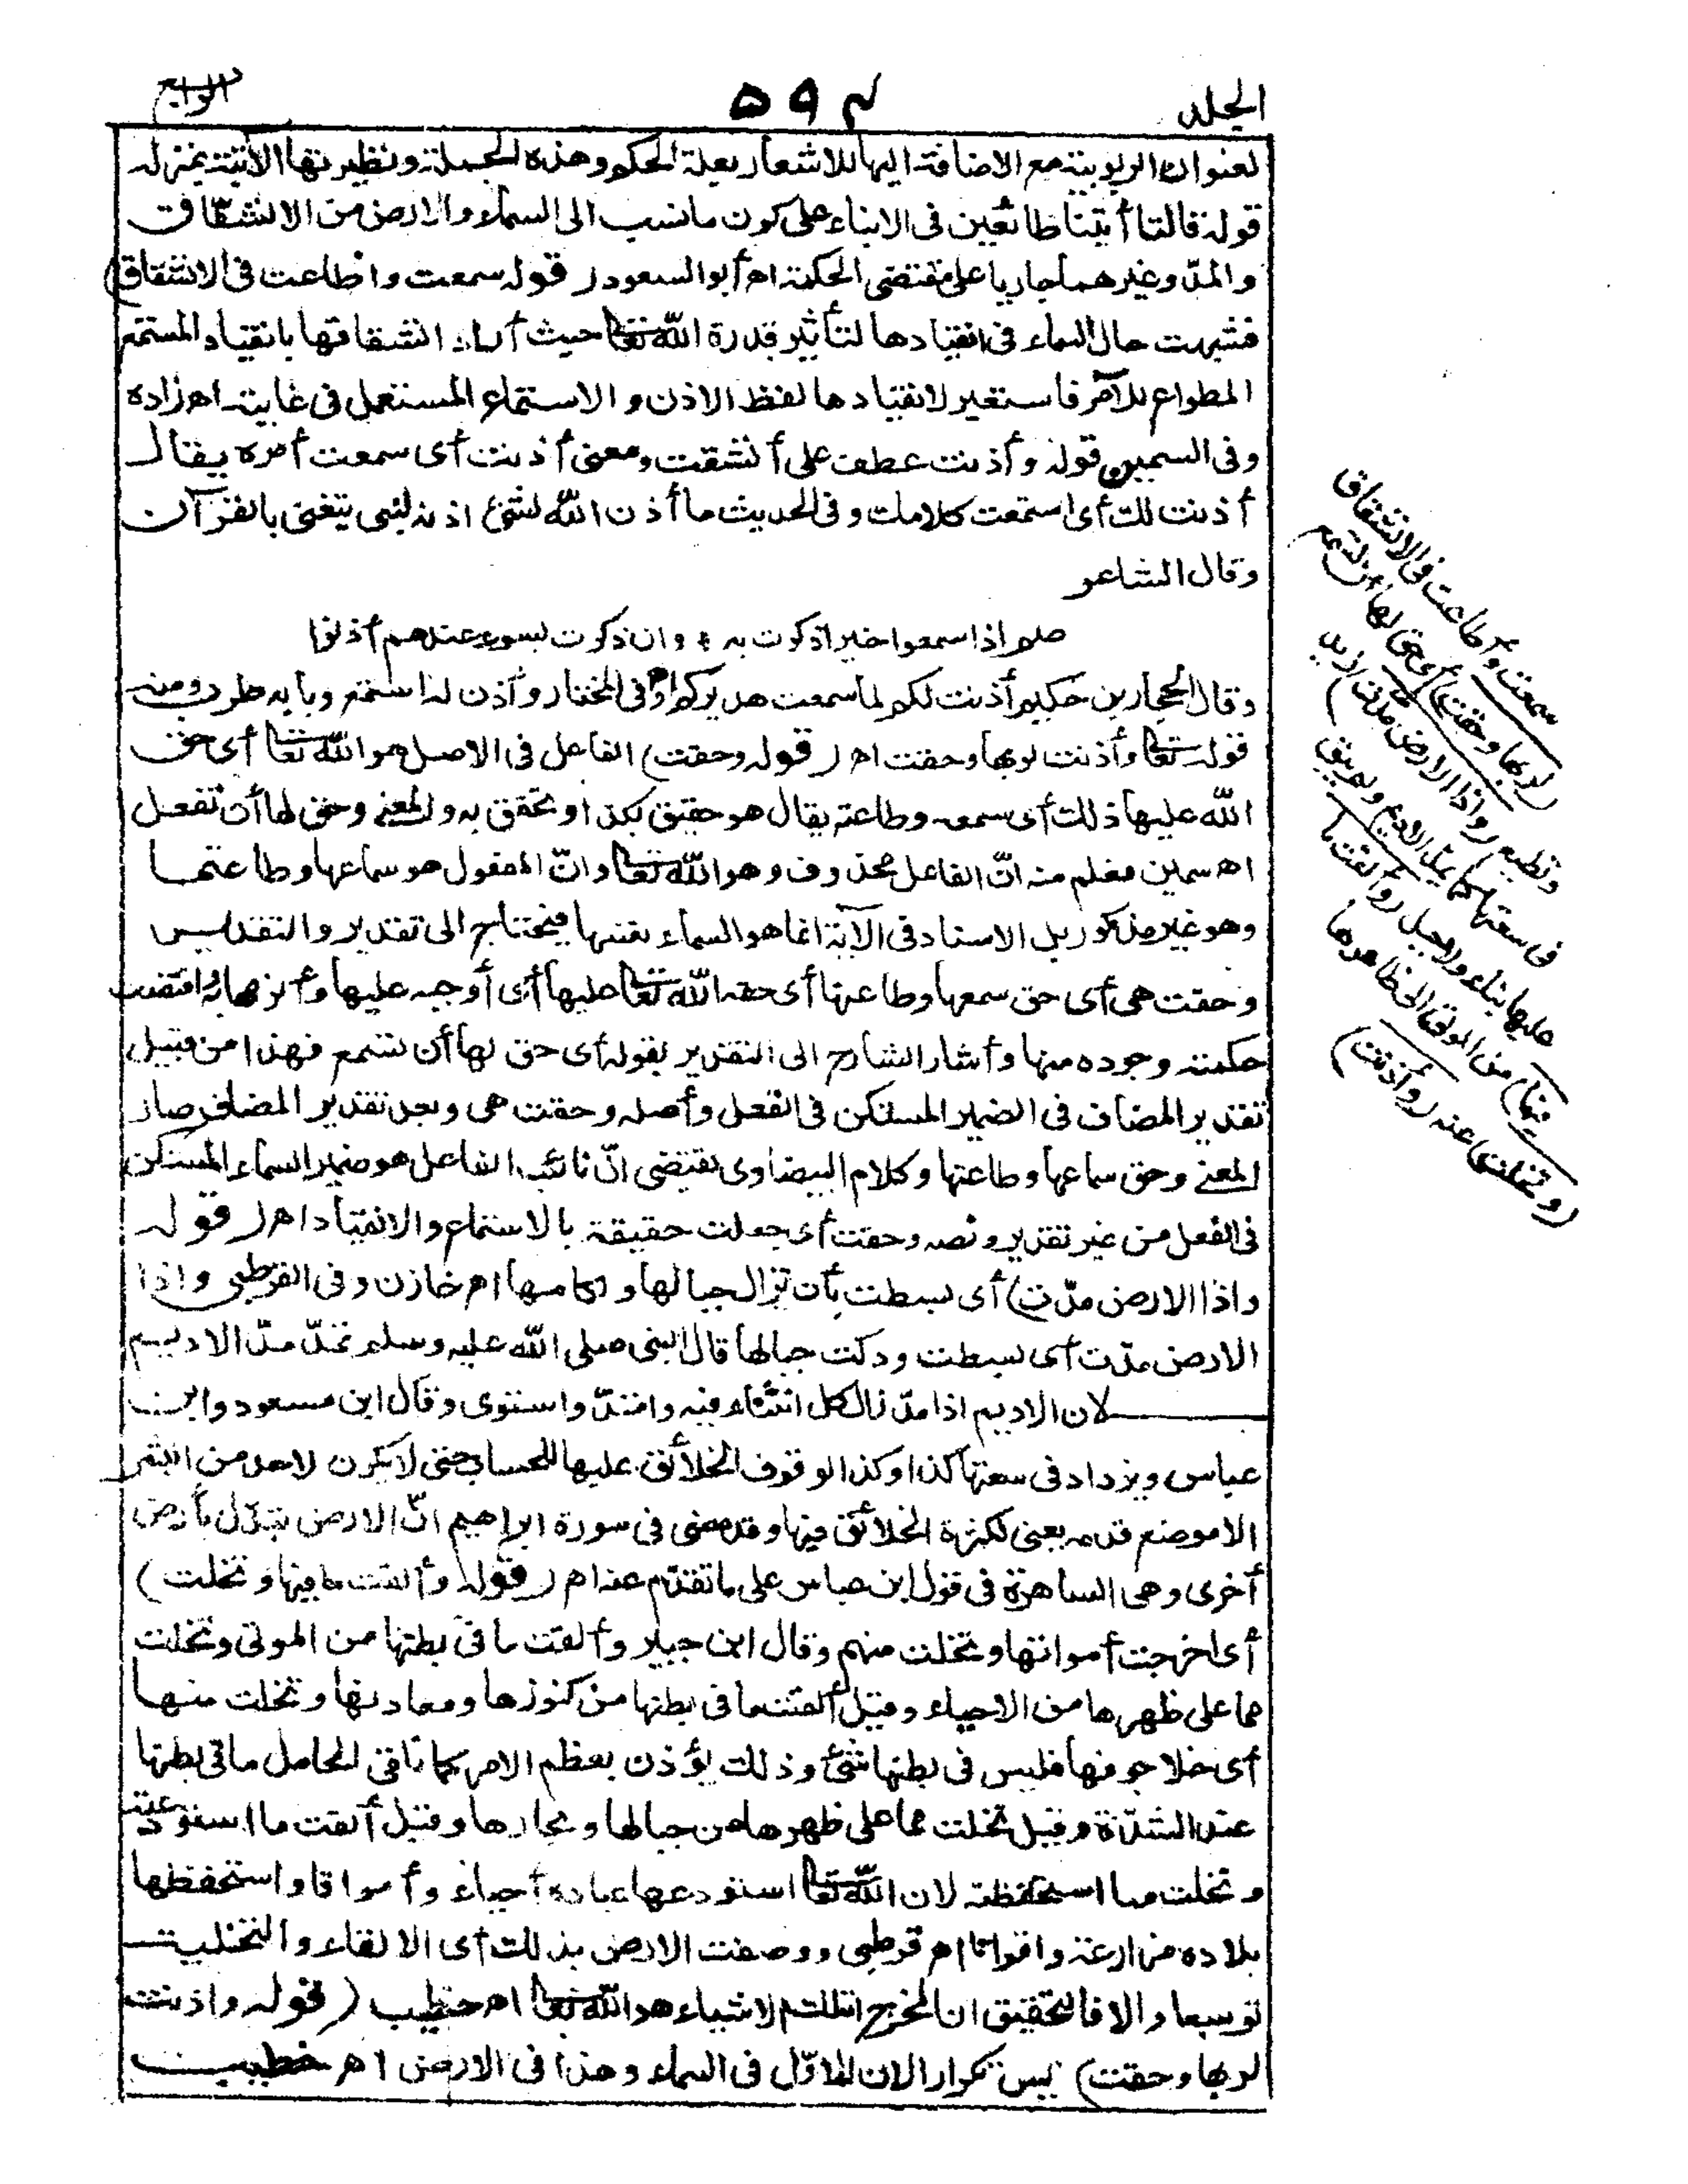 الجلد ٥٩٤ الرابع
لعنوان الربوبية مع الاضافة اليها للاشعار بعلة الحكم وهذه الجملة ونظيرتها الآتية بمنزلة
قوله قالتا أتينا طائعين فى الانباء على كون ما نسب الى السماء والارض من الانشقاق
والمدّ وغيرهما جاريا على مقتضى الحكمة اه أبو السعود ( قوله سمعت واطاعت فى الانشقاق)
فشبهت حال السماء فى انقيادها لتأثير قدرة الله تعالى حيث أراد انشقاقها بانقياد المستمع
المطواع للآمر فاستعير لانقيادها لفظ الاذن والاستماع المستعمل فى غايته اه زاده
وفى السمين قوله وأذنت عطف على أنشقت ومعنى أذنت أى سمعت أمره يقال
أذنت لك أى استمعت كلامك وفى الحديث ما أذن الله لشئ اذنه لنبى يتغنى بالقرآن
وقال الشاعر
صم اذا سمعوا خيرا ذكرت به * وان ذكرت بسوء عندهم أذنوا
وقال الحجار بن حكيم أذنت لكم لما سمعت هديركم اه وفى المختار وأذن له استمع وبابه طرب ومنه
قوله تعالى وأذنت لربها وحقت اه ( قوله وحقت) الفاعل فى الاصل هو الله تعالى أى حق
الله عليها ذلك أى سمعه وطاعته يقال هو حقيق بكذا وتحقق به والمعنى وحق لها أن تفعل
اه سمين فعلم منه انّ الفاعل محذوف وهو الله تعالى وانّ المفعول هو سماعها وطاعتها
وهو غير مذكور بل الاسناد فى الآية انما هو السماء نفسها فيحتاج الى تقدير والتقدير
وحقت هى أى حق سمعها وطاعتها أى حقه الله تعالى عليها أى أوجبه عليها وألزمها به واقتضت
حكمته وجوده منها وأشار الشارح الى التقدير بقوله أى حق لها أن تسمع فهذا من قبيل
تقدير المضاف فى الضمير المستكن فى الفعل وأصله وحقت هى وبعد تقدير المضاف صار
المعنى وحق سماعها وطاعتها وكلام البيضاوى يقتضى انّ نائب الفاعل هو ضمير السماء المستكن
فى الفعل من غير تقدير ونصه وحقت أى جعلت حقيقة بالاستماع والانقياد اه ( قوله
واذا الارض مدّت) أى بسطت بأن تزال جبالها وآكامها اه خازن وفى القرطبى واذا
الارض مدّت أى بسطت ودكت جبالها قال النبى صلى الله عليه وسلم تمدّ مدّ الاديم
لان الاديم اذا مدّ زال كل انثناء فيه وامتدّ واستوى وقال ابن مسعود وابن
عباس ويزداد فى سعتها كذا وكذا لوقوف الخلائق عليها للحساب حتى لا يكون لاحد من البشر
الا موضع قدمه يعنى لكثرة الخلائق فيها وقد مضى فى سورة ابراهيم انّ الارض تبدّل بأرض
أخرى وهى الساهرة فى قول ابن عباس على ما تقدّم عنه اه ( قوله وألقت ما فيها وتخلت)
أى اخرجت أمواتها وتخلت منهم وقال ابن جبير وألقت ما فى بطنها من الموتى وتخلت
مما على ظهرها من الاحياء وقيل ألقت ما فى بطنها من كنوزها ومعادنها وتخلت منها
أى خلا جوفها فليس فى بطنها شئ وذلك يؤذن بعظم الامر كما تلقى الحامل ما فى بطنها
عند الشدّة وقيل تخلت مما على ظهرها من جبالها وبحارها وقيل ألقت ما استودعته
وتخلت مما استحفظته لان الله تعالى استودعها عباده أحياء وأمواتا واستحفظها
بلاده مزارعة واقواتا اه قرطبى ووصفت الارض بذلك أى الالقاء والتخلية
توسعا والا فالتحقيق ان المخرج لتلك الاشياء هو الله تعالى اه خطيب ( قوله واذنت
لربها وحقت) ليس تكرارا لان الاوّل فى السماء وهذا فى الارض اه خطيب
سمعت وأطاعت فى الانشقاق
(لربها وحقت) أى حق لها أن تسمع
وتطيع (واذا الارض مدّت) زيد
فى سعتها كما يمدّ الاديم ولم يبق
عليها بناء ولا جبل (وألقت ما
فيها) من الموتى الى ظاهرها
(وتخلت) عنه (وأذنت)